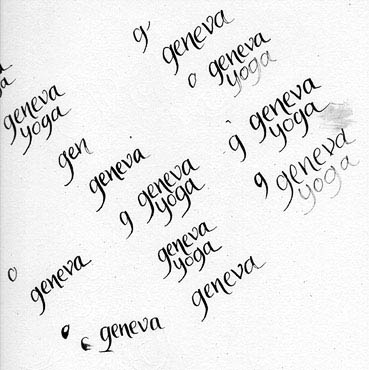 g
geneva
o
geneva
yoga
a
a
geneva
yoga
g
geneva
yoga
gen
geneva
g
geneva
yoga
g
geneva
yoga
geneva
yoga
o
geneva
geneva
geneva